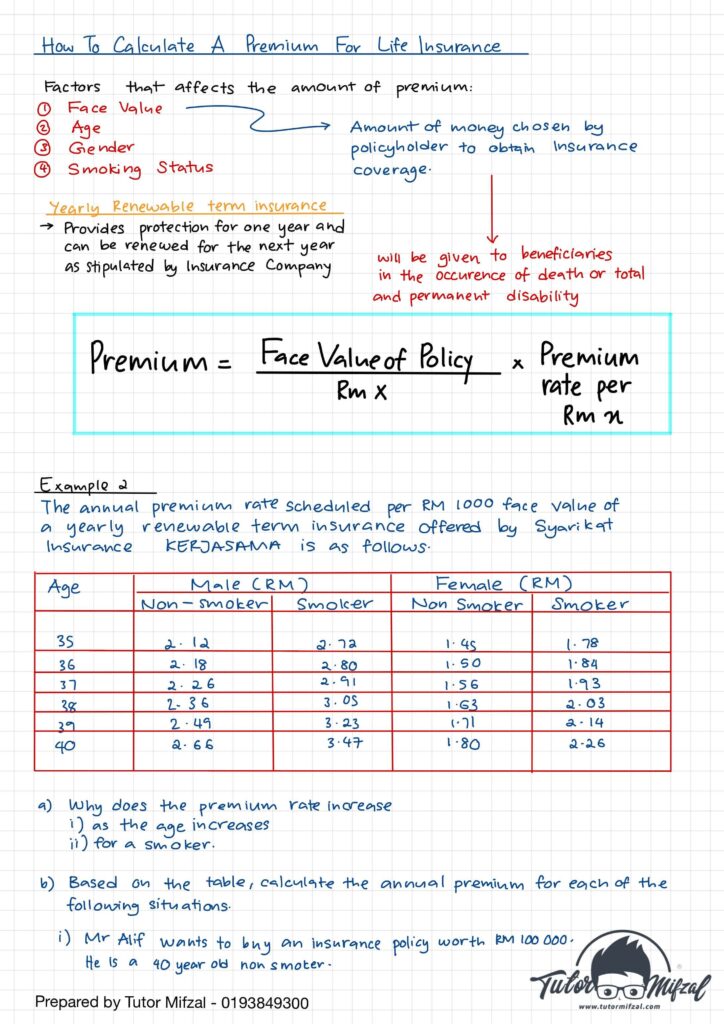 How To Calculate A Premium For Life Insurance
Factors that affects the amount of premium:
① Face Value
② Age
③ Gender
④ Smoking Status
Amount of money chosen by
policyholder to obtain Insurance
coverage.
Yearly Renewable term insurance
→ Provides protection for one year and
can be renewed for the next year
as stipulated by Insurance Company
will be given to beneficiaries
in the occurence of death or total
and permanent disability
Premium = Face Value of Policy / Rm x × Premium rate per Rm x
Example 2
The annual premium rate scheduled per RM 1000 face value of
a yearly renewable term insurance offered by Syarikat
Insurance KERJASAMA is as follows.
Age Male (RM) Female (RM)
Non-smoker Smoker Non Smoker Smoker
35 2.12 2.72 1.45 1.78
36 2.18 2.80 1.50 1.84
37 2.26 2.91 1.56 1.93
38 2.36 3.05 1.63 2.03
39 2.49 3.23 1.71 2.14
40 2.66 3.47 1.80 2.26
a) Why does the premium rate increase
i) as the age increases
ii) for a smoker.
b) Based on the table, calculate the annual premium for each of the
following situations.
i) Mr Alif wants to buy an insurance policy worth RM 100 000.
He is a 40 year old non smoker.
Prepared by Tutor Mifzal - 0193849300
Tutor Mifzal
www.tutormifzal.com